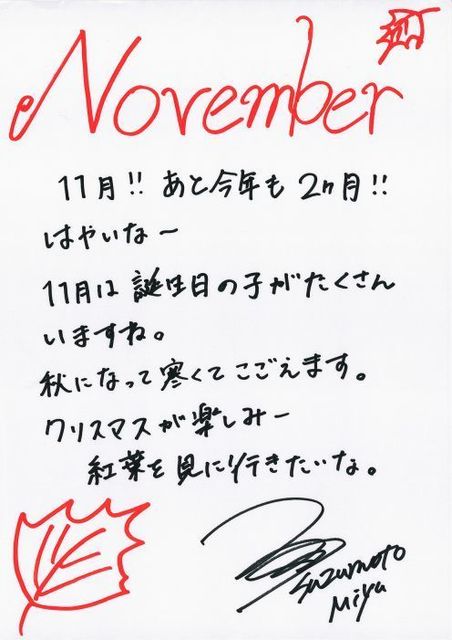 November
11月!! あと今年も2ヶ月!!
はやいなー
11月は誕生日の子がたくさん
いますね。
秋になって寒くてこごえます。
クリスマスが楽しみー
紅葉を見に行きたいな。
Suzumoto
Miyu